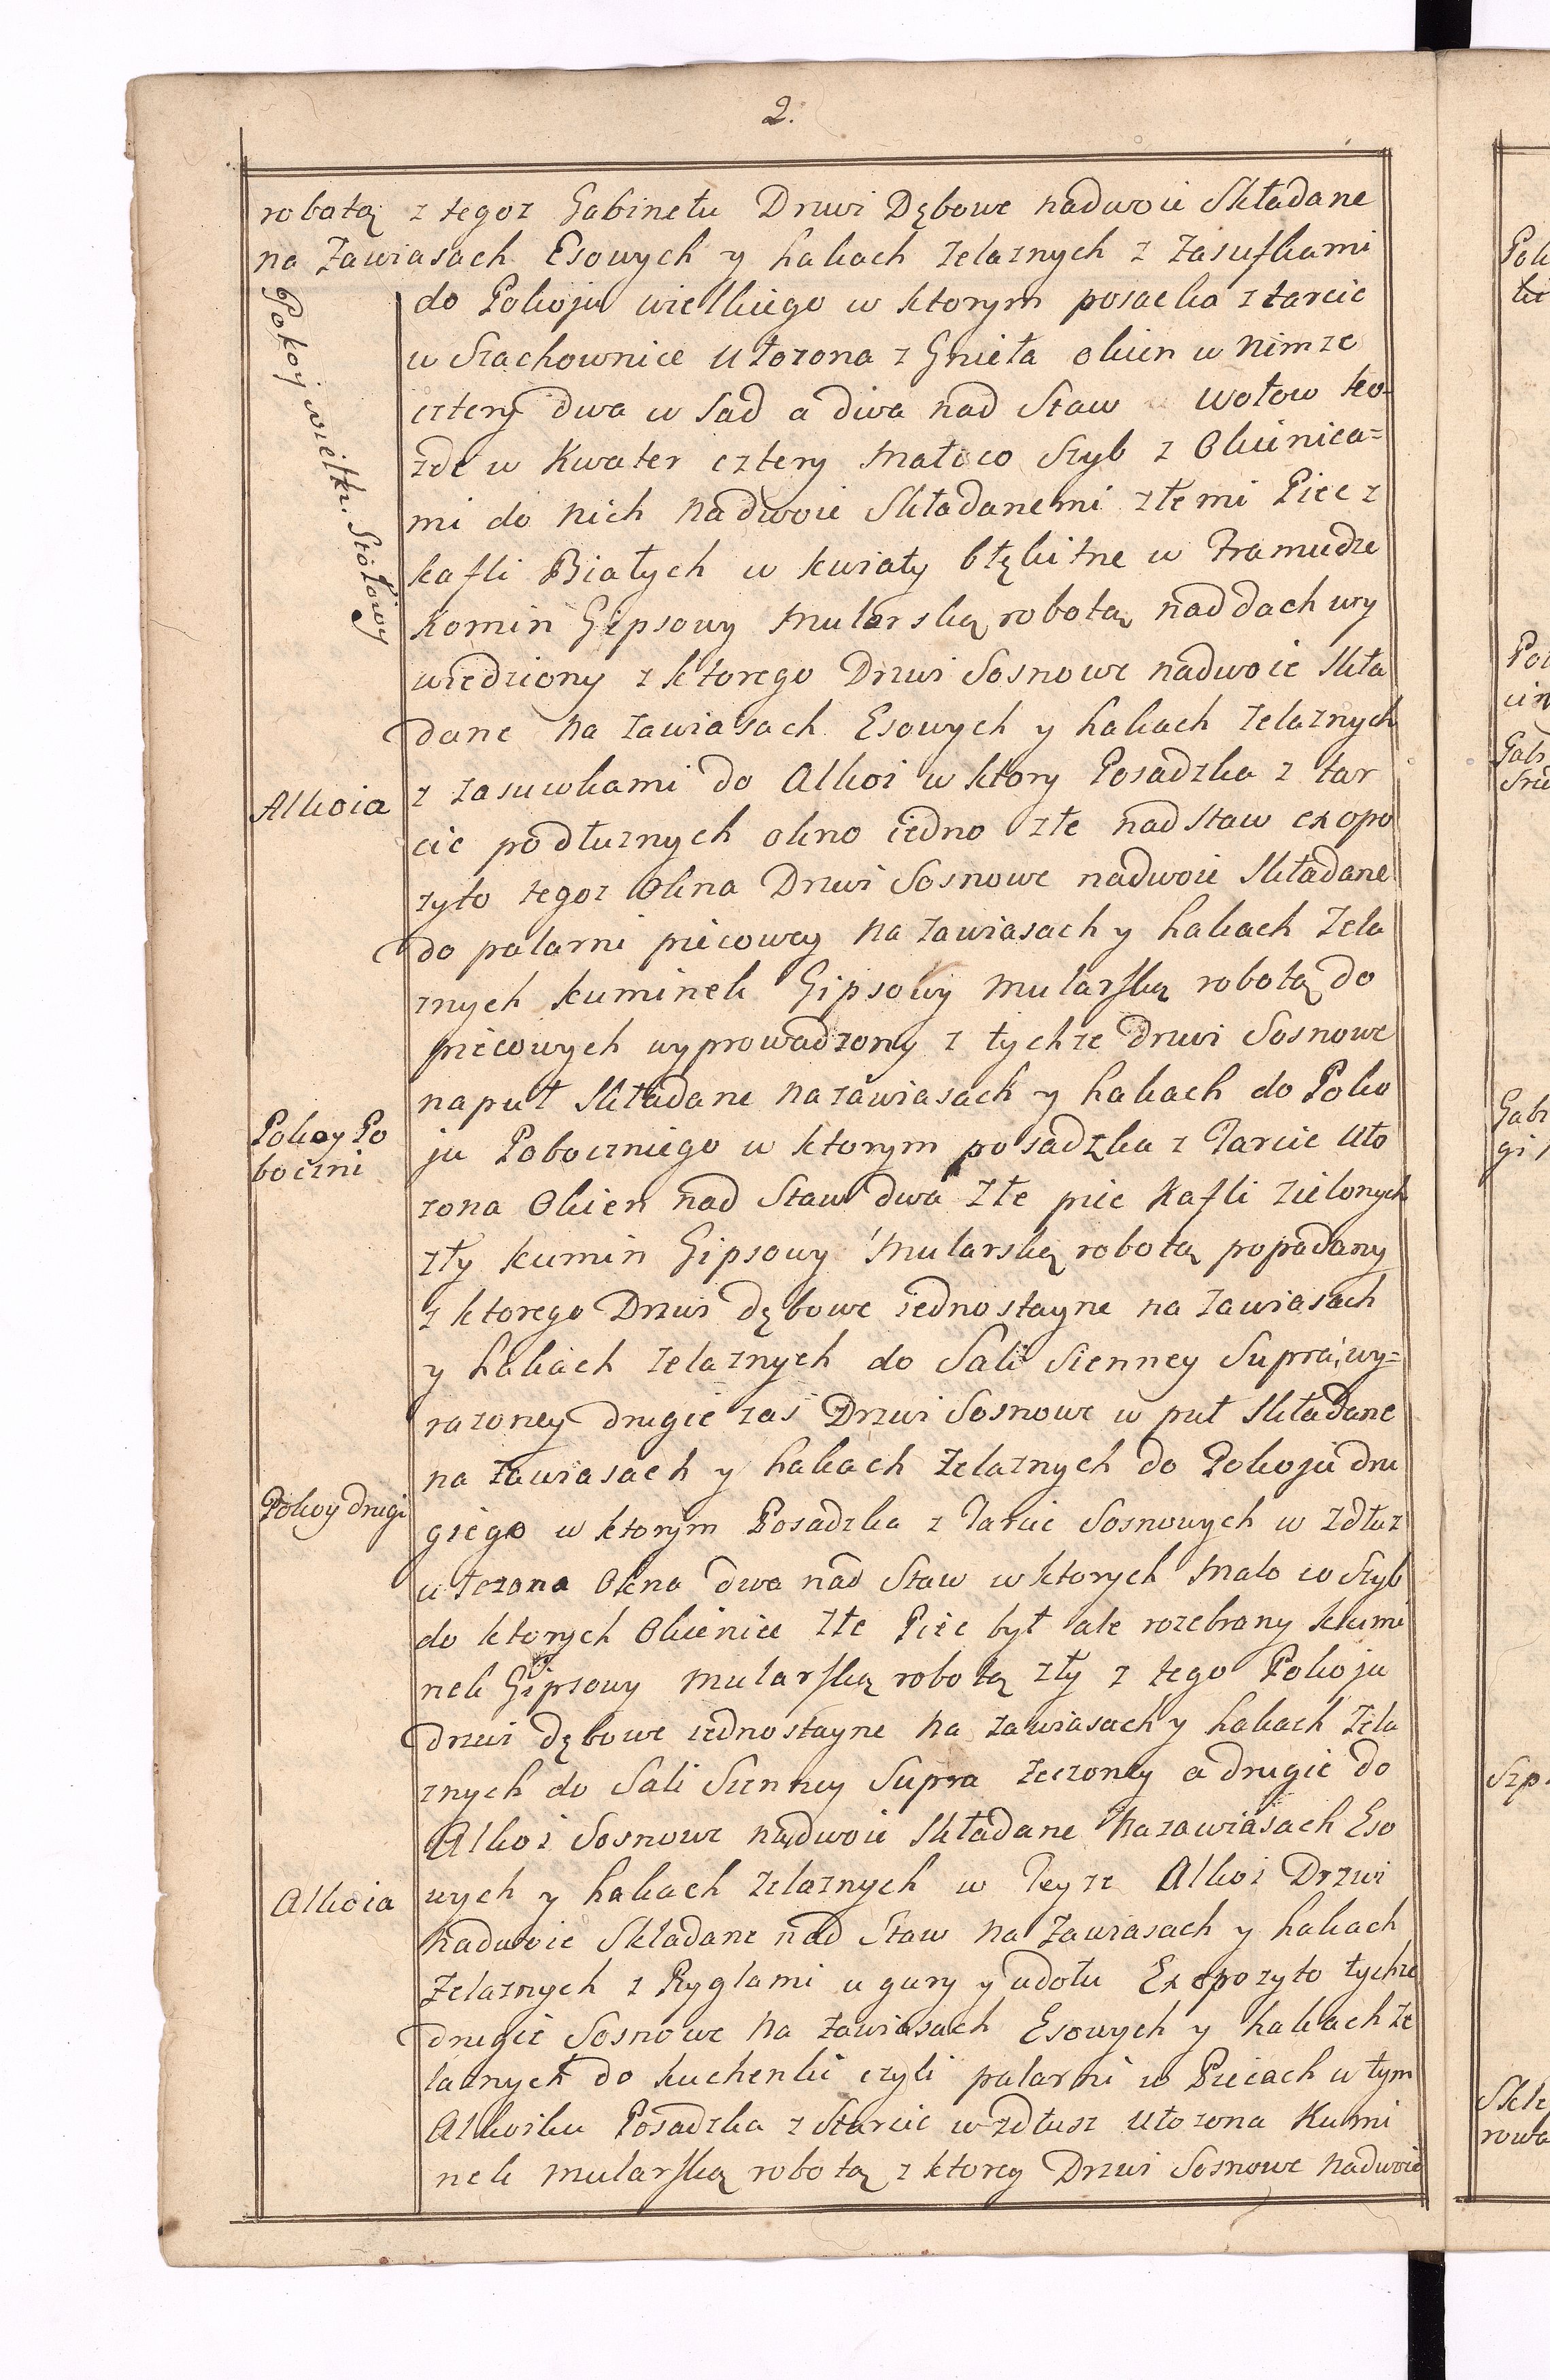 2.
robotą z tegoz Gabinetu Drzwi Dębowe nadwoie Składane
na Zawiasach Esowych y hakach zelaznych z Zasufkami
Pokoj wielki Stołowy
do Pokoju wielkiego w ktorym posacka z tarcic
w Szachownice Ułozona z Gnieta okien w nimze
cztery dwa w Sad a dwa nad Staw wołow ko-
zde w Kwater cztery mało co Szyb z Okienica=
mi do nich nadwoie Składanemi złemi Piec z
kafli Białych w kwiaty błękitne w Framudze
Komin Gipsowy mularską robotą nad dach wy
wiedziony z ktorego Drzwi Sosnowe nadwoie Skła
dane na zawiasach Esowych y hakach zelaznych
Alkoia
z zasuwkami do Alkoi w ktory Posadzka z tar
cic podłuznych okno iedno złe nad staw exopo
zyto tegoz Okna Drzwi Sosnowe nadwoie Składane
do palarni piecowey na zawiasach y hakach Zela
znych kuminek Gipsowy mularską robotą do
piecowych wyprowadzony z tychze drzwi Sosnowe
naput Składane na zawiasach y hakach do Poko
Pokoy Po
boczni
ju Poboczniego w ktorym posadzka z Tarcic Uło
zona Okien nad Staw dwa złe piec Kafli zielonych
zły kumin Gipsowy mularską robotą popadany
z ktorego Drzwi dębowe iednostayne na zawiasach
y hakach zelaznych do Sali Sienney Supra wy=
razoney drugie zas Drzwi Sosnowe w puł Składane
na zawiasach y hakach zelaznych do Pokoju dru
Pokoy drugi
giego w ktorym Posadzka z Tarcic Sosnowych w zdłuz
ułozona Okna dwa nad Staw w ktorych mało co Szyb
do ktorych Okienice złe Piec był ale rozebrany kumi
nek Gipsowy mularską robotą zły z tego Pokoju
drzwi dębowe iednostayne na zawiasach y hakach zela
znych do Sali Sienney Supra rzeczoney a drugie do
Alkoi Sosnowe nadwoie Składane na zawiasach Eso
Alkoia
wych y hakach zelaznych w Teyze Alkoi Drzwi
nadwoie Składane nad Staw na Zawiasach y hakach
Zelaznych z Ryglami u gury y udołu Exopozyto tychze
drugie Sosnowe na zawiasach Esowych y hakach ze
laznych do kuchenki czyli palarni w Piecach w tym
Alkoiku Posadzka z Starcic wzdłusz Ułozona Kumi
nek mularską robotą z ktorey Drzwi Sosnowe nadwoie